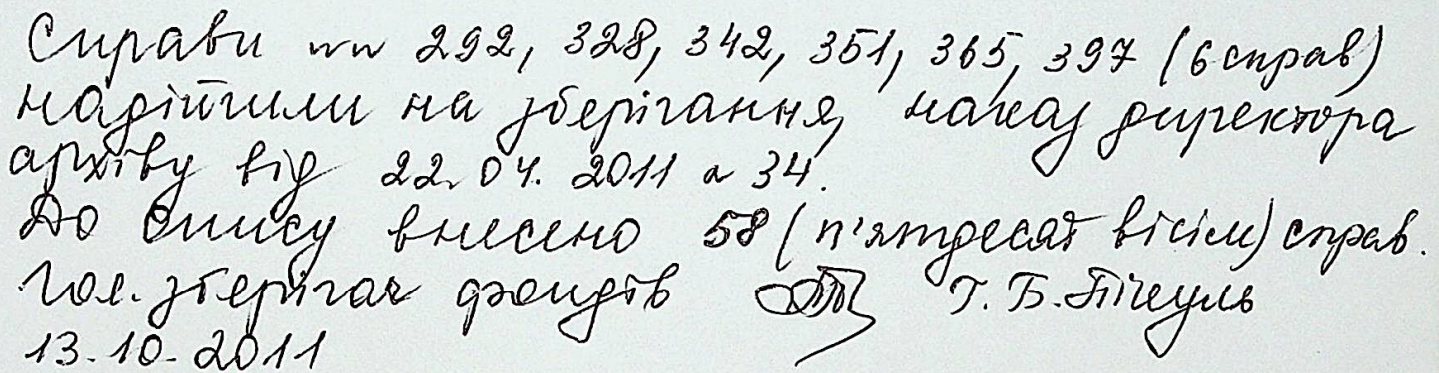 Справи №№ 292, 328, 342, 351, 365, 397 (6 справ)
надійшли на зберігання, наказ директора
архіву від 22.04.2011 № 34.
До опису внесено 58 (п'ятдесят вісім) справ.
Гол. зберігач фондів Т. Б.
13.10.2011